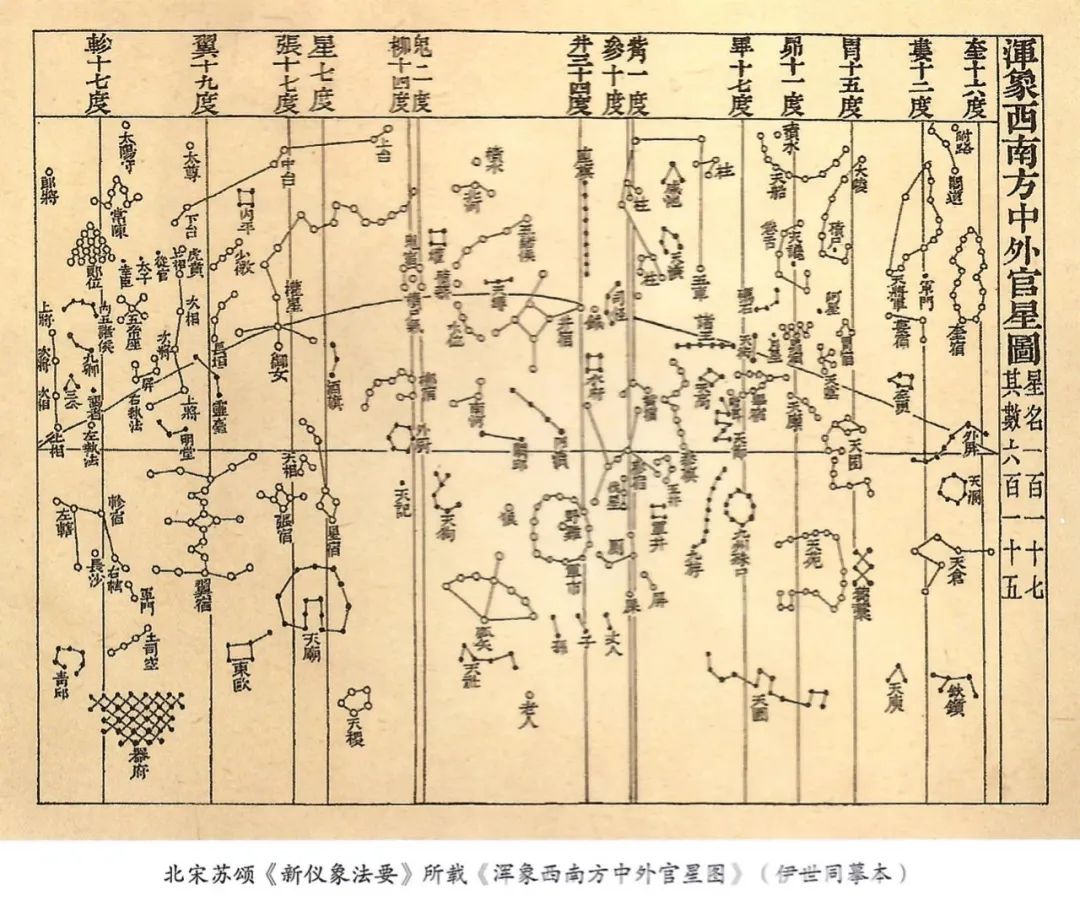 渾象西南方中外官星圖
星名一百一十七
其數六百一十五
奎十六度
婁十二度
胃十五度
昴十一度
畢十七度
觜一度
參十度
井三十四度
鬼二度
柳十四度
星七度
張十七度
翼十九度
軫十七度
附路
閣道
奎宿
外屏
天溷
天倉
鈇鑕
軍門
天將軍
婁宿
左更
天庾
大陵
積尸
積水
天船
卷舌
天讒
礪石
阿星
胃宿
天囷
天苑
芻藁
天園
天廩
月星
天街
畢宿
天高
諸王
五車
柱
柱
柱
咸池
天潢
司怪
天節
九州殊口
九斿
參旗
參宿
觜宿
伐星
玉井
軍井
屏
廁
屎
座旗
井宿
鉞
水府
五諸侯
天樽
積水
北河
水位
南河
闕邱
四瀆
狼
野雞
軍市
弧矢
孫
子
丈人
老人
天社
天狗
天記
鬼宿
積尸氣
爟
外厨
柳宿
酒旗
上台
中台
下台
權星
御女
內平
天相
星宿
張宿
天廟
天稷
太尊
少微
長垣
靈臺
明堂
翼宿
東甌
虎賁
從官
太子
幸臣
上相
次相
次將
上將
右執法
屏
五帝座
內五諸侯
九卿
三公
謁者
左執法
太陽守
常陳
郎位
郎將
上將
次將
次相
上相
軫宿
左轄
右轄
長沙
軍門
土司空
青邱
器府
北宋苏颂《新仪象法要》所载《浑象西南方中外官星图》（伊世同摹本）